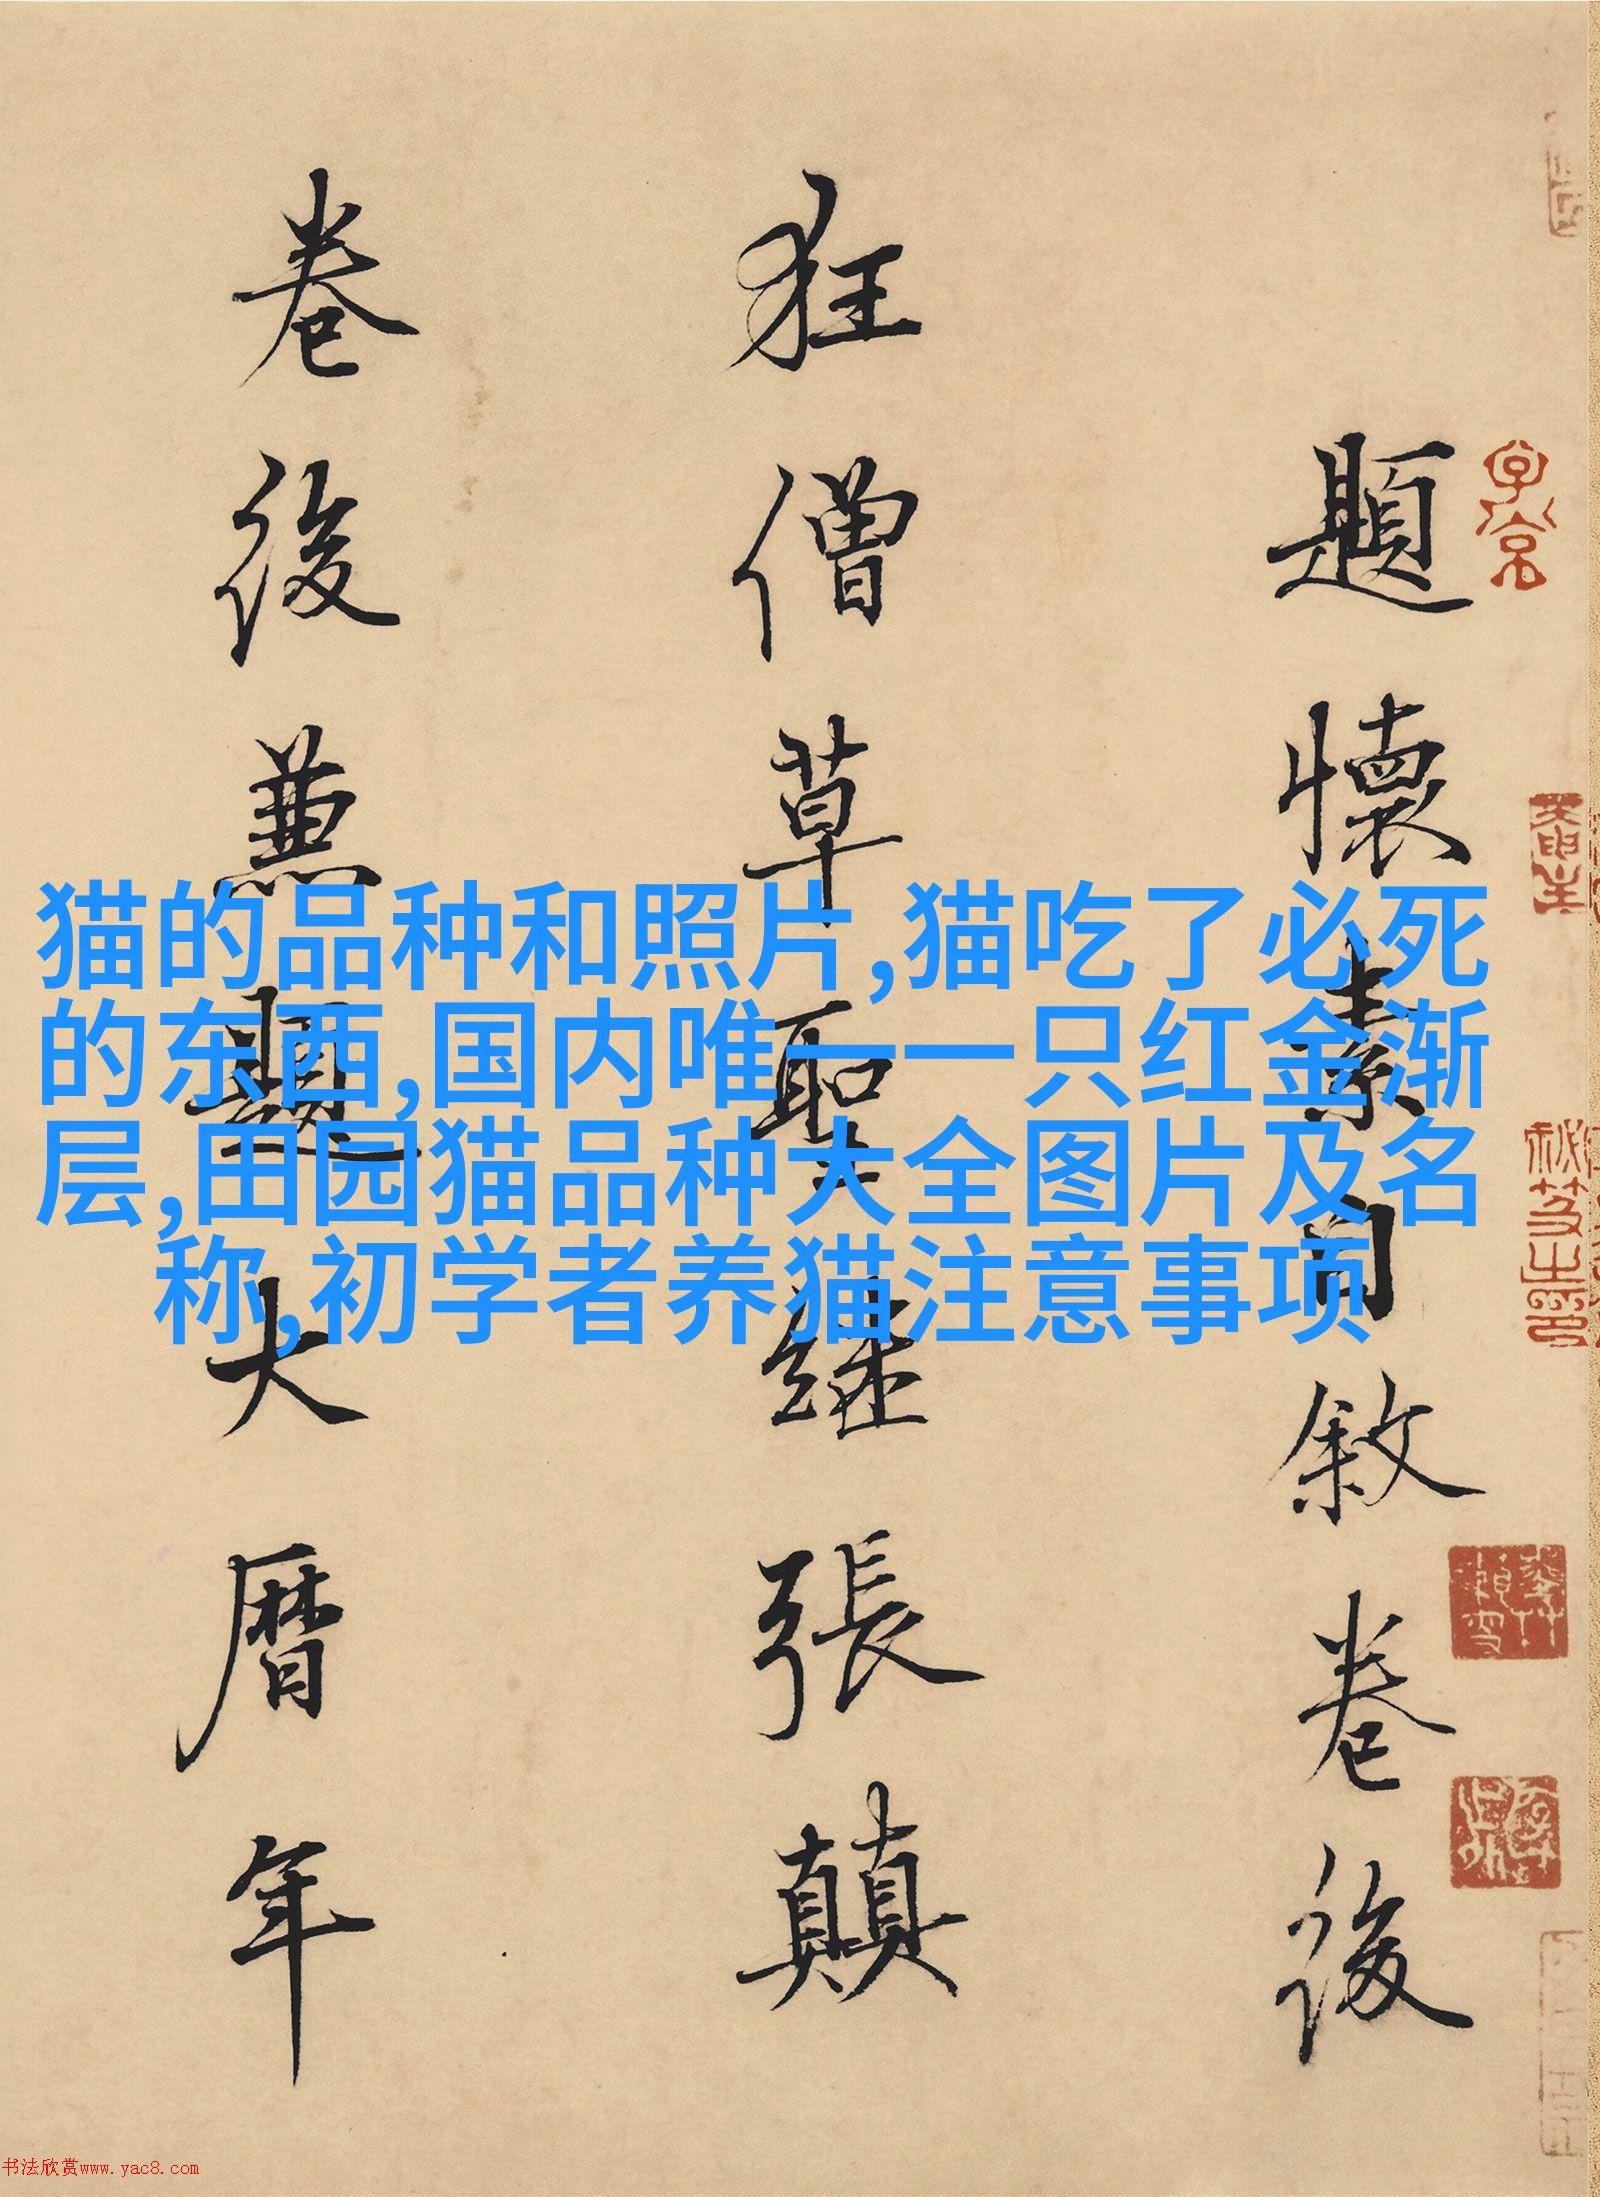 題懷素自敘卷後
狂僧草聖繼張顛
卷後兼題大曆年
猫的品种和照片,猫吃了必死
的东西,国内唯一一只红金渐
层,田园猫品种大全图片及名
称,初学者养猫注意事项
书法欣赏www.yac8.com